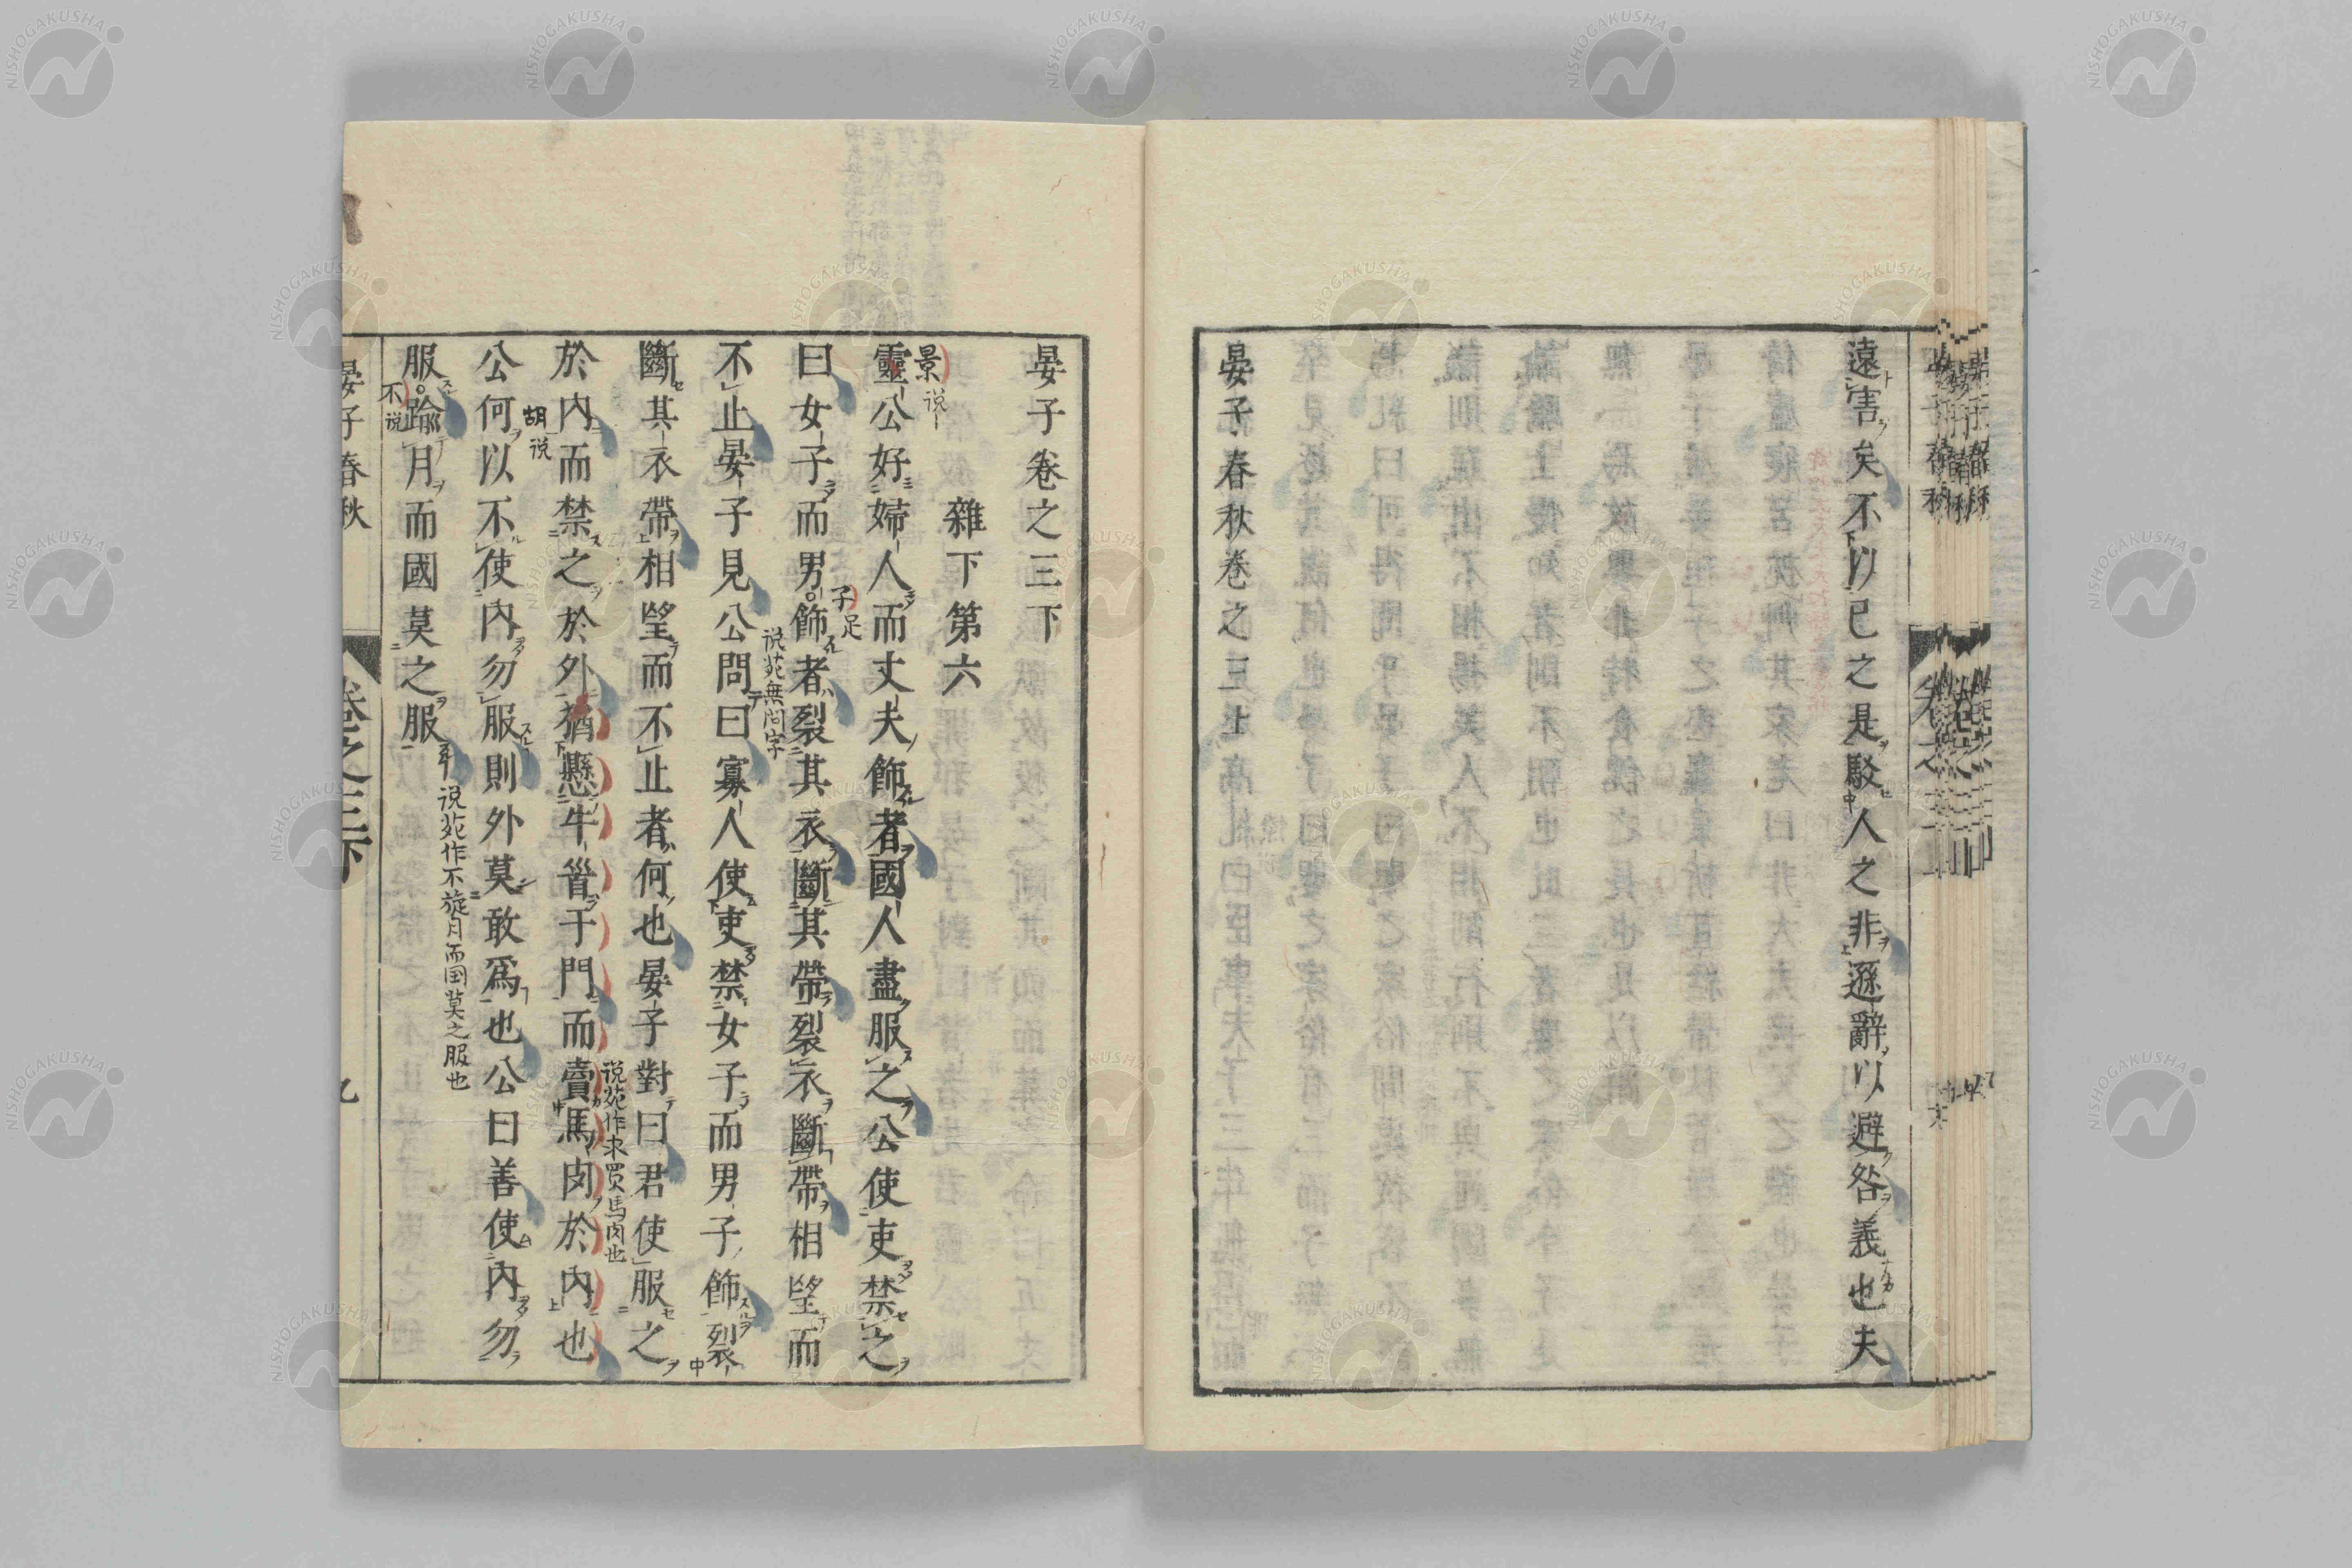 遠害矣不以已之是駁人之非遜辭以避咎義也夫
晏子春秋卷之三上
晏子卷之三下
雜下第六
靈公好婦人而丈夫飾者國人盡服之公使吏禁之
景说
曰女子而男飾者裂其衣斷其帶裂衣斷帶相望而
子足
不止晏子見公問曰寡人使吏禁女子而男子飾裂
说苑無问字
斷其衣帶相望而不止者何也晏子對曰君使服之
於內而禁之於外猶懸牛首于門而賣馬肉於內也
说苑作求買馬肉也
公何以不使內勿服則外莫敢爲也公曰善使內勿
胡说
服踰月而國莫之服
不说
说苑作不旋月而国莫之服也
晏子春秋
卷之三下
九
NISHOGAKUSHA